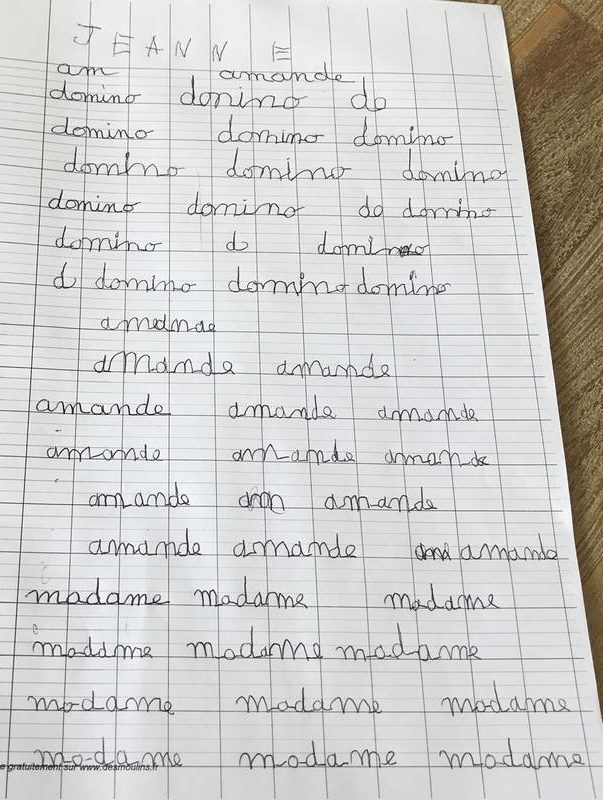 JEANNE
am amande
domino donino do
domino domino domino
domino domino domino
domino domino do domino
domino d domino
d domino domino domino
amednae
amande amande
amande amande amande
amande amande amande
amande aman amande
amande amande ama amande
madame madame madame
madame madame madame
madame madame madame
madame madame madame
e gratuitement sur www.desmoulins.fr